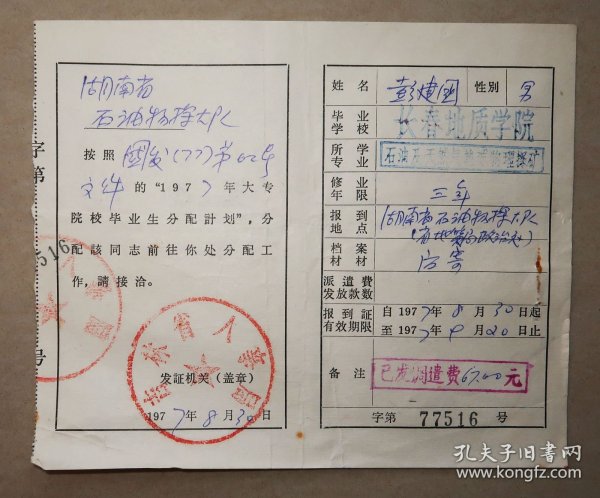 湖南省
石油物探大队
按照 國发(77)第62号
文件 的"1977年大专
院校毕业生分配計划",分
配該同志前往你处分配工
作,請接洽。
发证机关(盖章)
1977年8月30日
字第
77516
号
姓名 彭建国 性别 男
毕业学校 长春地质学院
所学专业
修业年限 三年
报到地点 湖南省石油物探大队
档案材料 寄
派遣费发放款数
报到証有效期限 自1977年8月30日起
至1977年9月20日止
备注 已发调遣费67.00元
字第 77516 号
孔夫子旧书网
www.kongfz.com